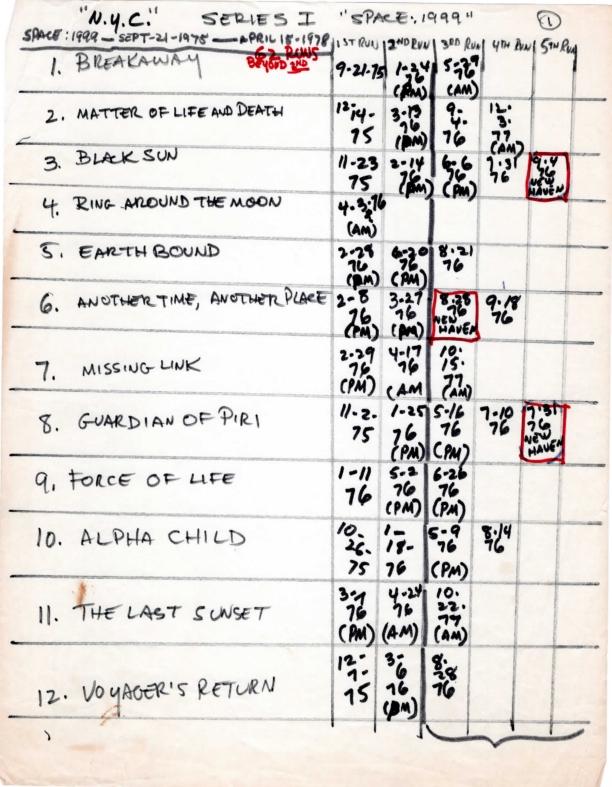 "N.Y.C." SERIES I "SPACE:1999" 1
SPACE:1999 — SEPT-21-1975 — APRIL 15-1978
62 RUNS
BEYOND 2ND
1ST RUN 2ND RUN 3RD RUN 4TH RUN 5TH RUN
1. BREAKAWAY 9-21-75 1-24 76 (PM) 5-29 76 (AM)
2. MATTER OF LIFE AND DEATH 12-14-75 3-13 76 (PM) 9-4-76 12-3-77 (AM)
3. BLACK SUN 11-23 75 2-14 76 (PM) 6-6 76 (PM) 7-31 76 9-4 76 NEW HAVEN
4. RING AROUND THE MOON 4-3-76 (AM)
5. EARTH BOUND 2-28 76 (PM) 6-20 76 (PM) 8-21 76
6. ANOTHER TIME, ANOTHER PLACE 2-8 76 (PM) 3-27 76 (PM) 8-28 76 NEW HAVEN 9-18 76
7. MISSING LINK 2-29 76 (PM) 4-17 76 (AM 10-15-77 (AM)
8. GUARDIAN OF PIRI 11-2-75 1-25 76 (PM) 5-16 76 (PM) 7-10 76 7-31 76 NEW HAVEN
9. FORCE OF LIFE 1-11 76 5-2 76 (PM) 6-26 76 (PM)
10. ALPHA CHILD 10-26-75 1-18-76 5-9 76 (PM) 8-14 76
11. THE LAST SUNSET 3-7 76 (PM) 4-24 76 (AM) 10-22-77 (AM)
12. VOYAGER'S RETURN 12-7-75 3-6 76 (PM) 8-28 76